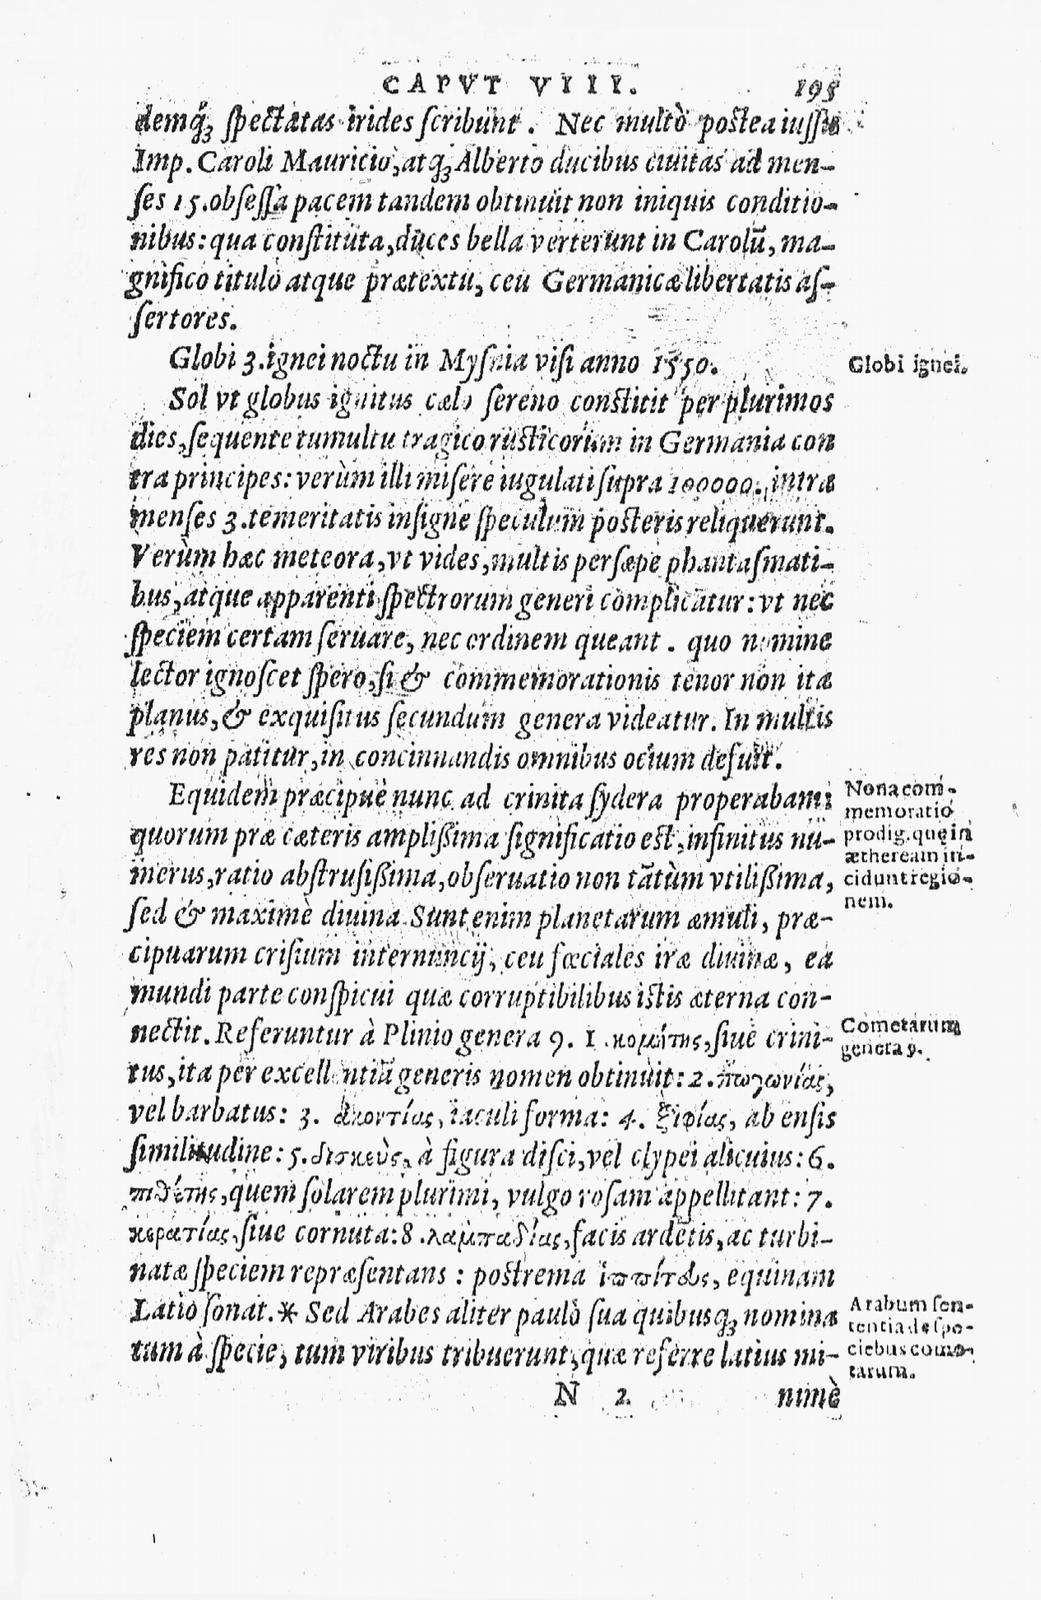 CAPVT VIII. 195
demq́; spectatas irides scribunt. Nec multò postea iussu
Imp. Caroli Mauricio, atq; Alberto ducibus ciuitas ad men-
ses 15. obsessa pacem tandem obtinuit non iniquis conditio-
nibus: qua constituta, duces bella verterunt in Carolū, ma-
gnifico titulo atque prætextu, ceu Germanicæ libertatis as-
sertores.
Globi 3. ignei noctu in Mysnia visi anno 1550.
Globi ignei.
Sol vt globus ignitus cælo sereno constitit per plurimos
dies, sequente tumultu tragico rusticorum in Germania con
tra principes: verùm illi miserè iugulati supra 100000. intra
menses 3. temeritatis insigne speculum posteris reliquerunt.
Verùm hæc meteora, vt vides, multis persæpe phantasmati-
bus, atque apparenti spectrorum generi complicātur: vt nec
speciem certam seruare, nec ordinem queant. quo nomine
lector ignoscet spero, si & commemorationis tenor non ita
planus, & exquisitus secundum genera videatur. In multis
res non patitur, in concinnandis omnibus ocium defuit.
Equidem præcipuè nunc ad crinita sydera properabam:
quorum præ cæteris amplißima significatio est, infinitus nu-
merus, ratio abstrusißima, obseruatio non tātùm vtilißima,
sed & maximè diuina. Sunt enim planetarum æmuli, præ-
cipuarum crisium internuncij, ceu fœciales iræ diuinæ, ea
mundi parte conspicui quæ corruptibilibus istis æterna con-
nectit. Referuntur à Plinio genera 9. 1. κομήτης, siuè crini-
tus, ita per excellentiā generis nomen obtinuit: 2. πωγωνίας,
vel barbatus: 3. ἀκοντίας, iaculi forma: 4. ξιφίας, ab ensis
similitudine: 5. δισκεὺς, à figura disci, vel clypei alicuius: 6.
πιθέτης, quem solarem plurimi, vulgo rosam appellitant: 7.
κερατίας, siue cornuta: 8. λαμπαδίας, facis ardētis, ac turbi-
natæ speciem repræsentans: postrema ἱππίτας, equinam
Latio sonat. * Sed Arabes aliter paulò sua quibusq; nomina
tum à specie, tum viribus tribuerunt, quæ referre latius mi-
Nona com-
memoratio
prodig. quę in
ætheream in-
cidunt regio-
nem.
Cometarum
genera 9.
Arabum sen-
tentia de spe-
ciebus come-
tarum.
N 2 nimè